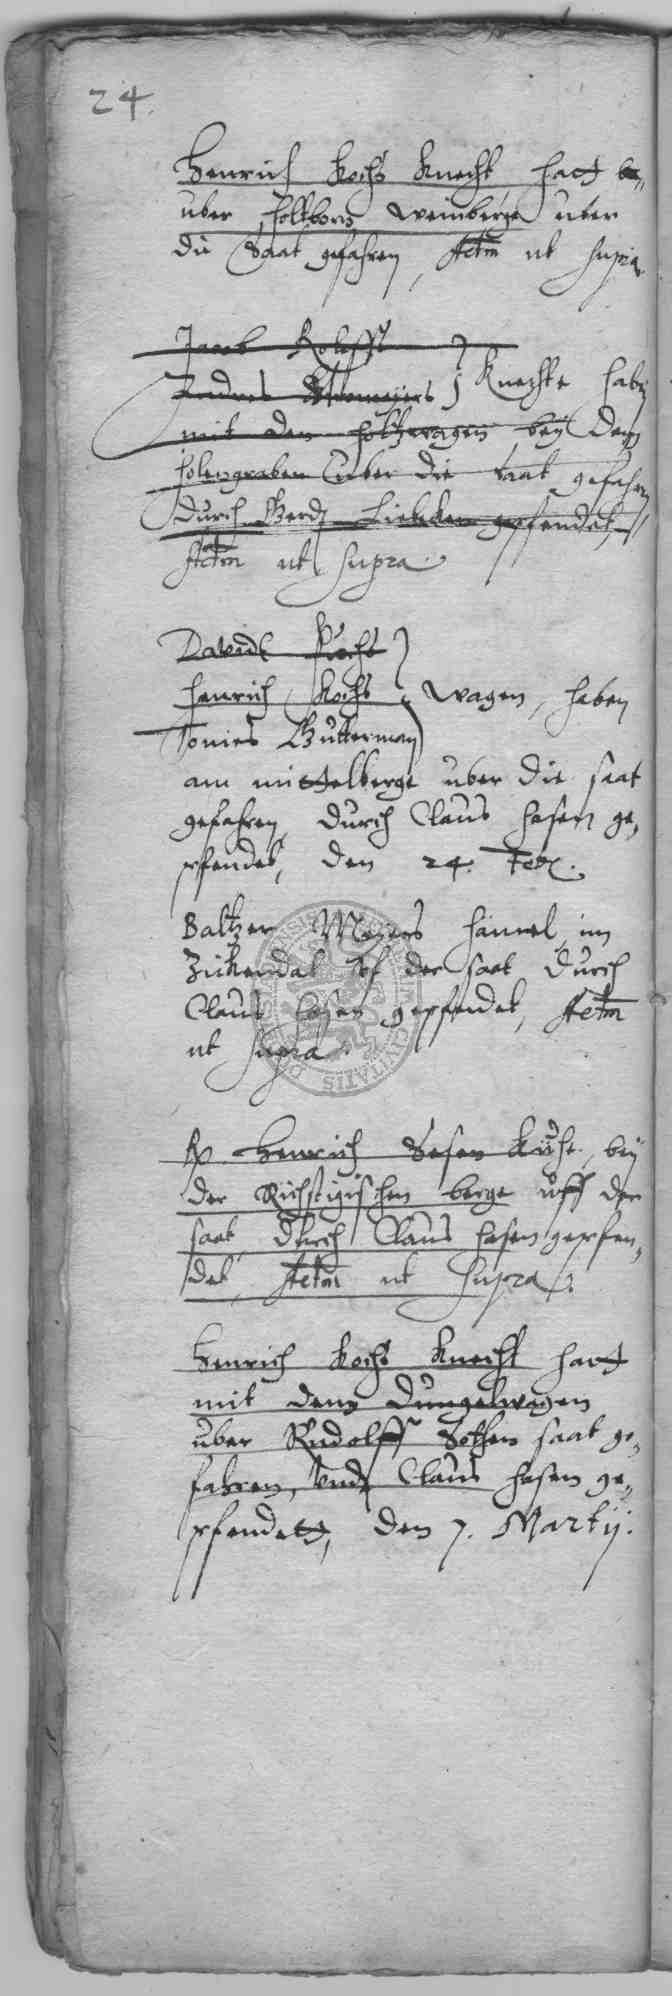 24.
Henrich Kochs Knecht, hatt
uber Holtborn weinberge uber
die Saat gefahren, Actm ut supra
Jacob Roleffs
Andres Knechte habē
mit den holtzwagen bey dem
holengraben uber die saat gefahrē
durch Gerdt Lideken gepfendet,
Actm ut supra.
Davidt
Henrich Kochs wagen, haben
Tonies Gutterman
am mittelberge uber die saat
gefahren, durch Claus hasen ge,
pfendet, den 24. Feb.
Baltzer Meyers hamel im
Zickendal uf der saat durch
Claus hasen gepfendet, Actm
ut supra.
Henrich Sosen Kuhe, bey
der berge uff der
saat, durch Claus hasen gepfen,
det, Actm ut supra.
Henrich Kochs Knecht hatt
mit dem Dungelwagen
uber Rudolff Sothen saat ge,
fahren, und Claus hasen ge,
pfendett, den 7. Martij.
SIGILLUM CIVITATIS